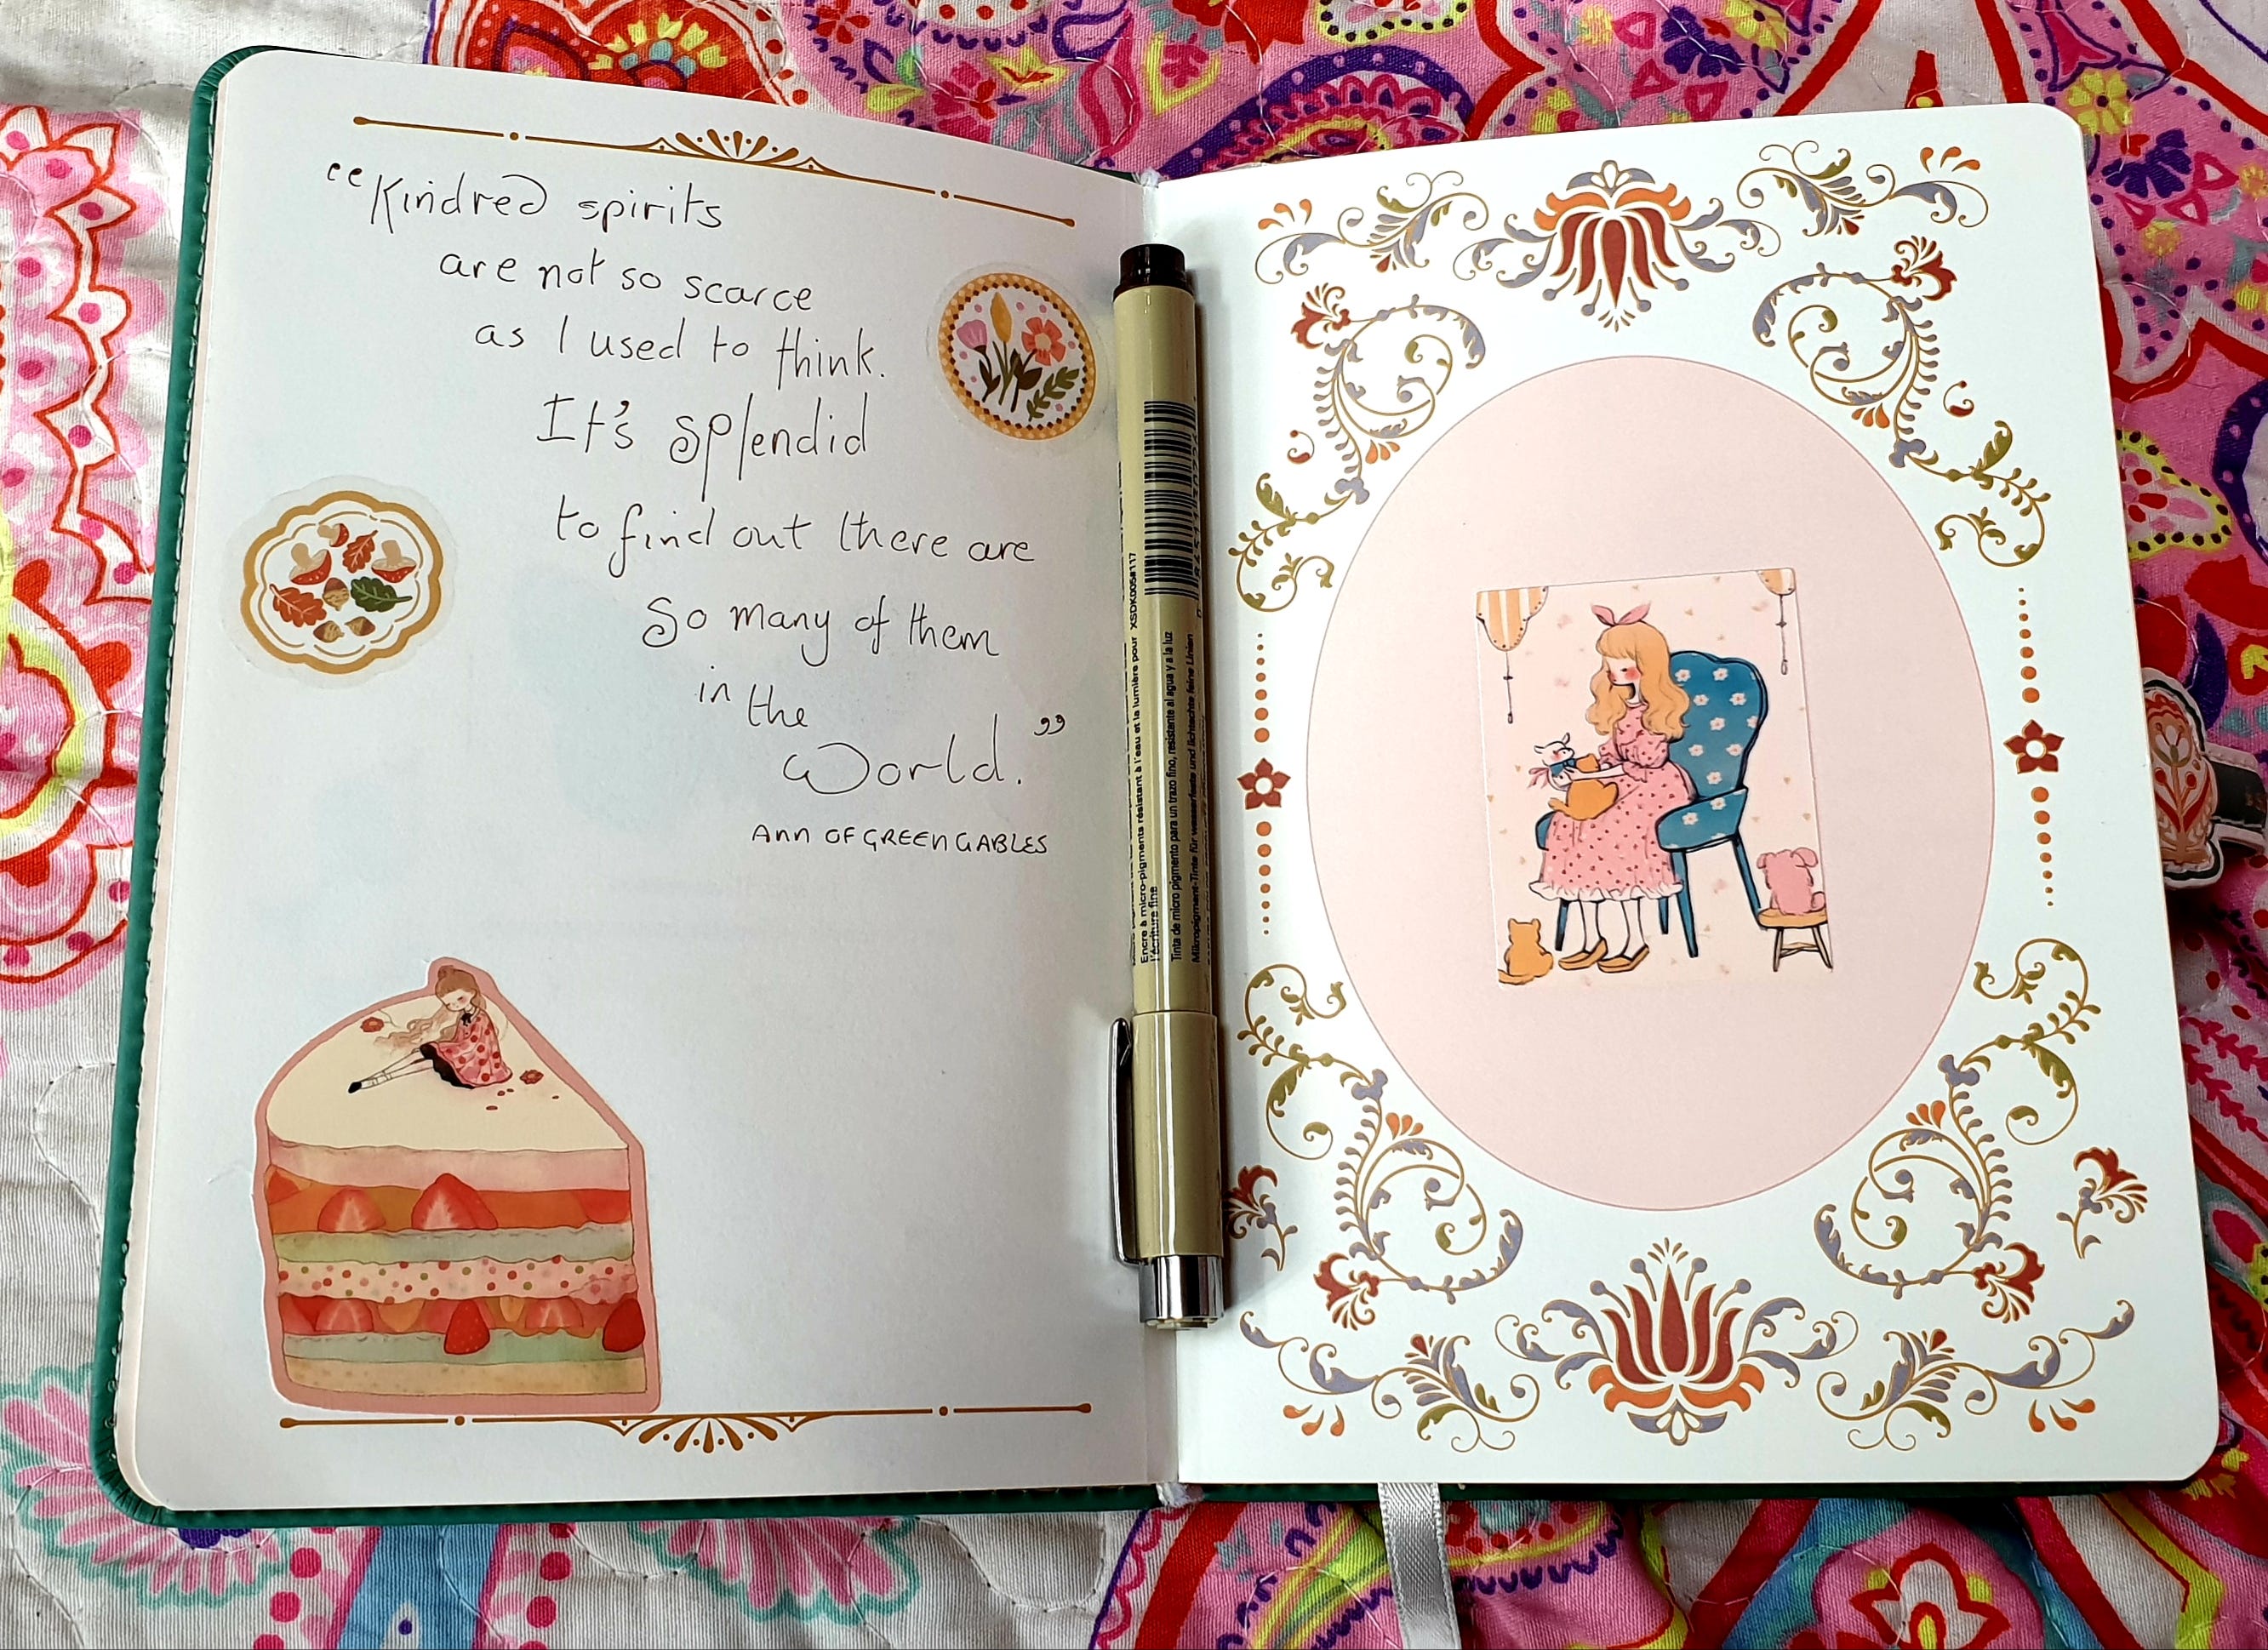 “Kindred spirits
are not so scarce
as I used to think.
It's splendid
to find out there are
so many of them
in the
World.”
Ann OF GREEN GABLES
XSDK005#117
Encre à micro-pigments résistant à l'eau et la lumière pour
l'écriture fine
Tinta de micro pigmento para un trazo fino, resistente al agua y a la luz
Mikropigment-Tinte für wasserfeste und lichtechte feine Linien